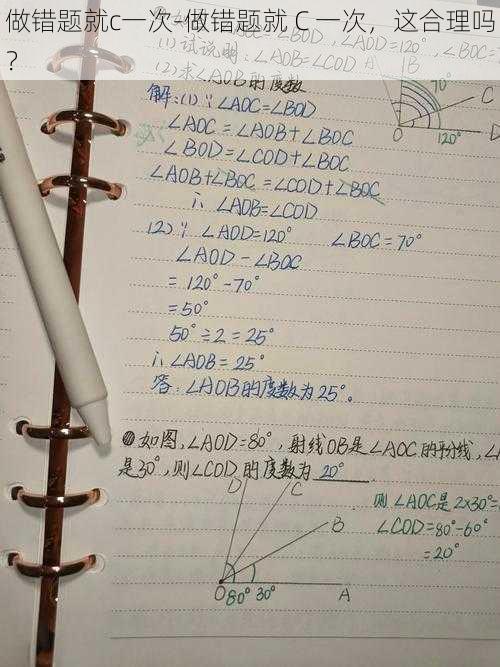 做错题就c一次-做错题就 C 一次，这合理吗
？
(1)试说明：∠AOB=∠COD A B
(2)求∠AOB的度数 70°
C
O 120° D
解：(1)∵∠AOC=∠BOD
∠AOC=∠AOB+∠BOC
∠BOD=∠COD+∠BOC
∠AOB+∠BOC=∠COD+∠BOC
∴∠AOB=∠COD
(2)∵∠AOD=120° ∠BOC=70°
∠AOD-∠BOC
=120°-70°
=50°
50°÷2=25°
∴∠AOB=25°
答：∠AOB的度数为25°。
如图，∠AOD=80°，射线OB是∠AOC的平分线，
是30°，则∠COD的度数为 20°
则∠AOC是2×30°
∠COD=80°-60°
=20°
D C
B
O 80° 30° A